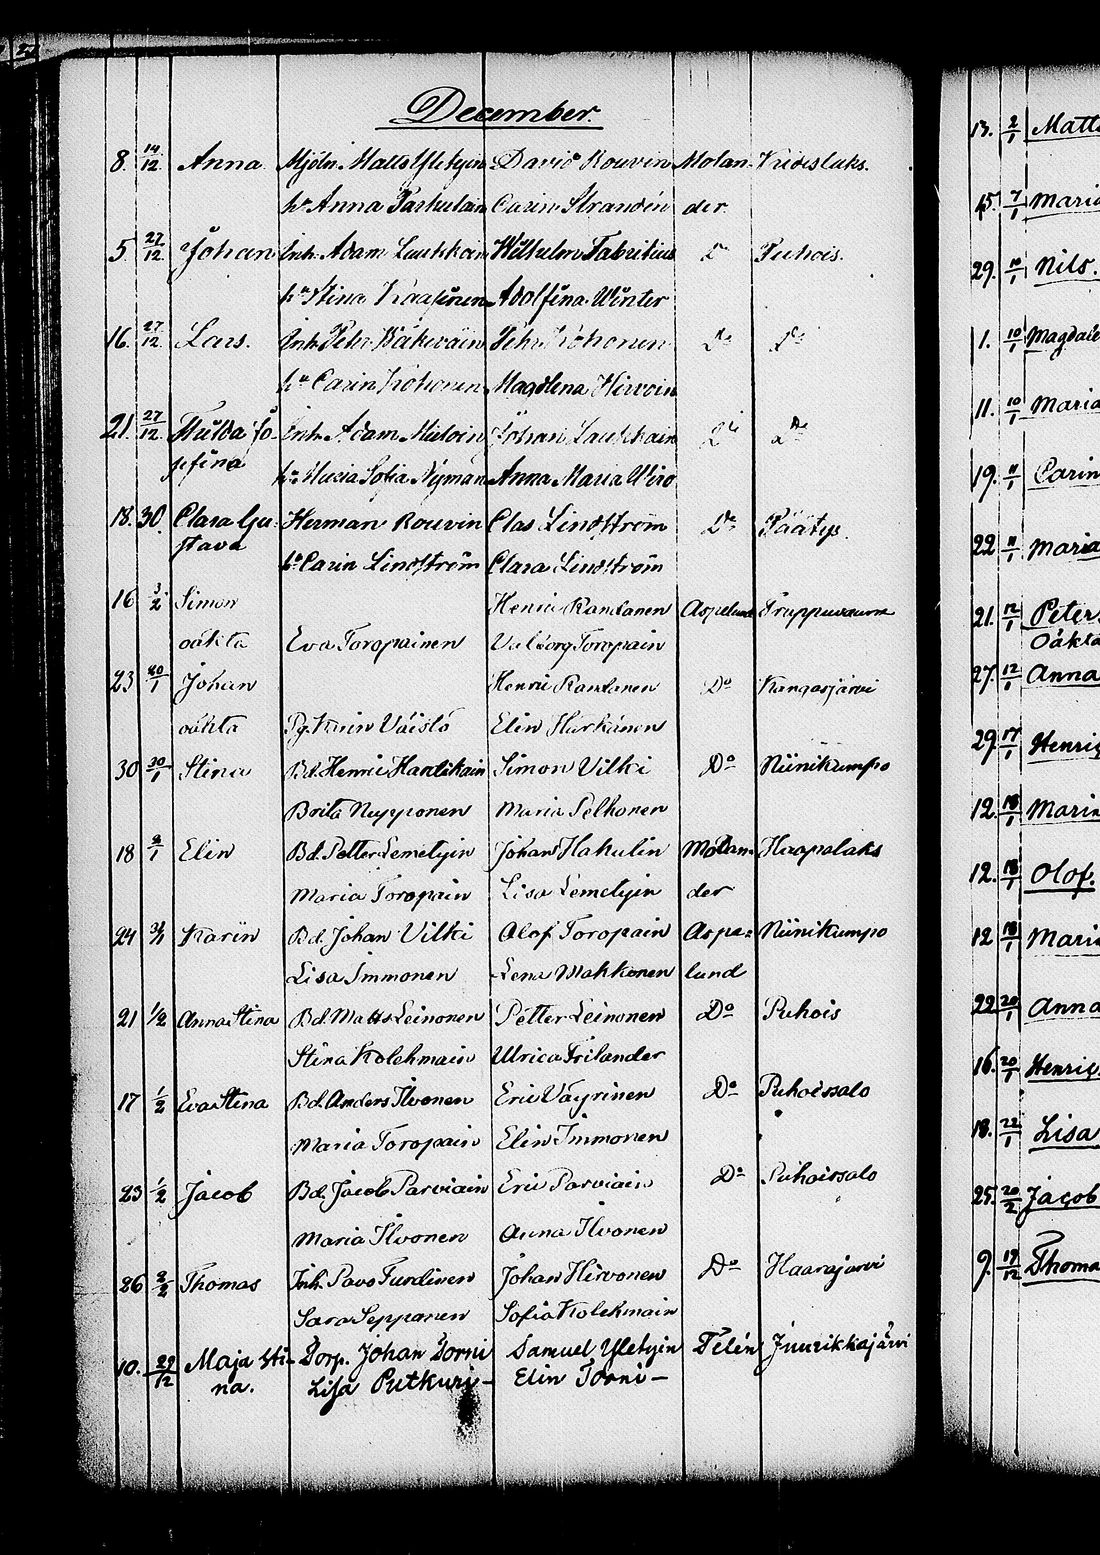 December.
8. 14/12 Anna. Mjöln. Matts Yletyin David Rouvin Molan- Kideslaks.
hu Anna Parkulain Carin Strandén der.
5. 27/12. Johan Inh. Adam Laukkain Wilhelm Fabritius Do Puhois.
hu Stina Kaasinen Adolfina Winter
16. 27/12. Lars. Inh. Pehr Wäkeväin Pehr Kohonen Do Do
hu Carin Kohonen Magdlena Hirvoin
21. 27/12. Hulda Jo- Inh. Adam Mieloin Johan Laukkain Do Do
sefina hu Maria Sofia Nyman Anna Maria Wiro
18. 30. Clara Gu- Herman Rouvin Clas Lindström Do Päätys.
stava hu Carin Lindström Clara Lindström
16 3/2 Simon Henric Randanen Aspelund
oäkta Eva Toropainen Valborg Toropain
23 30/1 Johan Henric Randanen Do Kangasjärvi
oäkta Pg. Karin Väistö Elin Härkänen
30 30/1 Stina Bd. Henric Hardikain Simon Vilki Do Niinikumpo
Brita Nupponen Maria Pelkonen
18 8/1 Elin Bd. Petter Lemetyin Johan Hakulin Molan- Haapalaks
Maria Toropain Lisa Lemetyin der
24 31/1 Karin Bd. Johan Vilki Olof Toropain Aspe- Niinikumpo
Lisa Immonen Lena Mahkonen lund
21 1/2 Anna Stina Bd. Matts Leinonen Petter Leinonen Do Puhois
Stina Kolehmain Ulrica Frilander
17 1/2 Eva Stina Bd. Anders Ilvonen Eric Väyrinen Do Puhoissalo
Maria Toropain Elin Immonen
23 1/2 Jacob Bd. Jacob Parviain Eric Parviain Do Puhoissalo
Maria Ilvonen Anna Ilvonen
26 2/2 Thomas Inh. Pavo Turdinen Johan Hirvonen Do Haarajärvi
Sara Sepponen Sofia Kolehmain
10. 29/12 Maja Sti- Torp. Johan Torni Samuel Yletyin Telén Juurikkajärvi
na. Lisa Putkuri- Elin Torni-
13. 2/1 Matts
15. 7/1 Maria
29. 10/1 Nils.
1. 10/1 Magdale
11. 10/1 Maria
19. 11/1 Carin
22. 11/1 Maria
21. 12/1 Peter
Oäkta
27. 12/1 Anna
29. 17/1 Henric
12. 18/1 Maria
12. 18/1 Olof.
12. 18/1 Maria
22. 20/1 Anna
16. 20/1 Henric
18. 22/1 Lisa
25. 20/2 Jacob
9. 19/12 Thoma